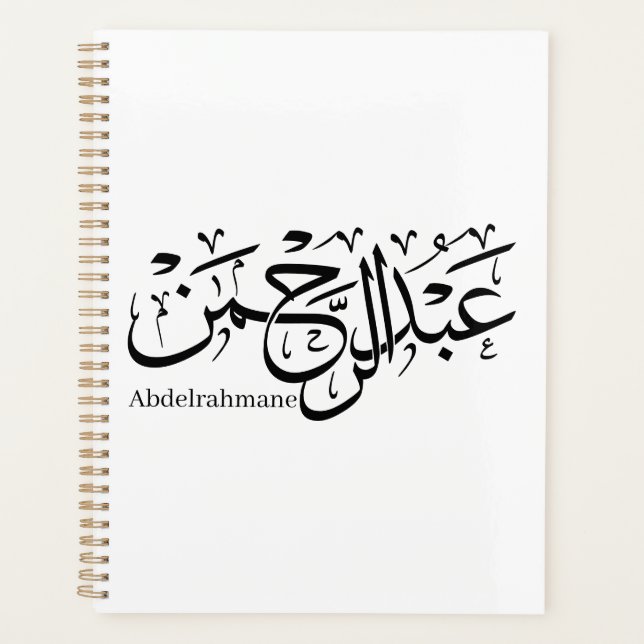 عَبْدُ الرَّحْمَنْ
Abdelrahmane